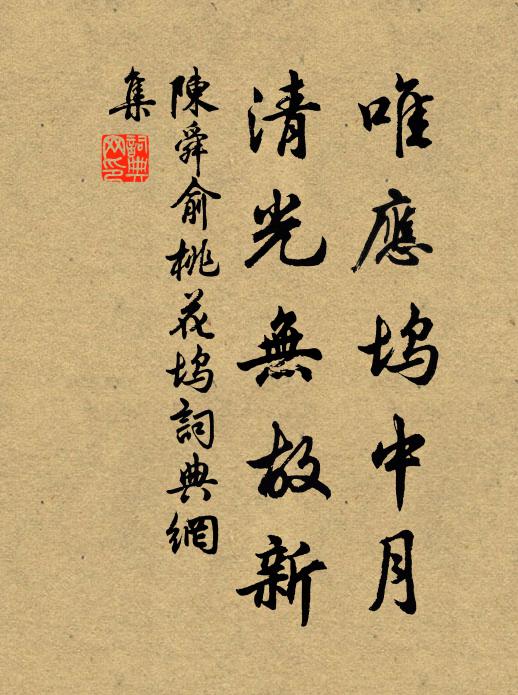 唯應塢中月
清光無故新
陳舜俞桃花塢詞典網
集
詞典
網印